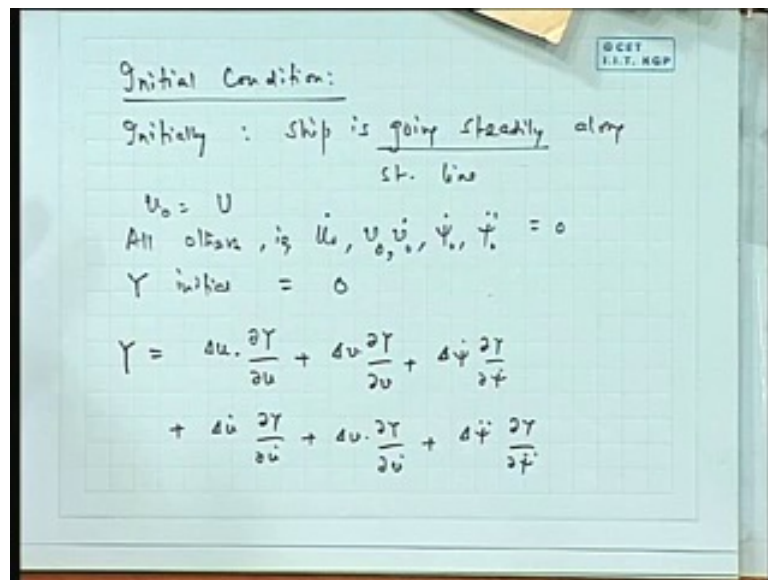 ©CET
I.I.T. KGP
Initial Condition:
Initially : Ship is going steadily along
st. line
u₀ = U
All others, is u̇₀, v₀, v̇₀, ψ̇₀, ψ̈₀ = 0
Y initial = 0
Y = Δu. ∂Y/∂u + Δv ∂Y/∂v + Δψ̇ ∂Y/∂ψ̇
+ Δu̇ ∂Y/∂u̇ + Δv. ∂Y/∂v̇ + Δψ̈ ∂Y/∂ψ̈